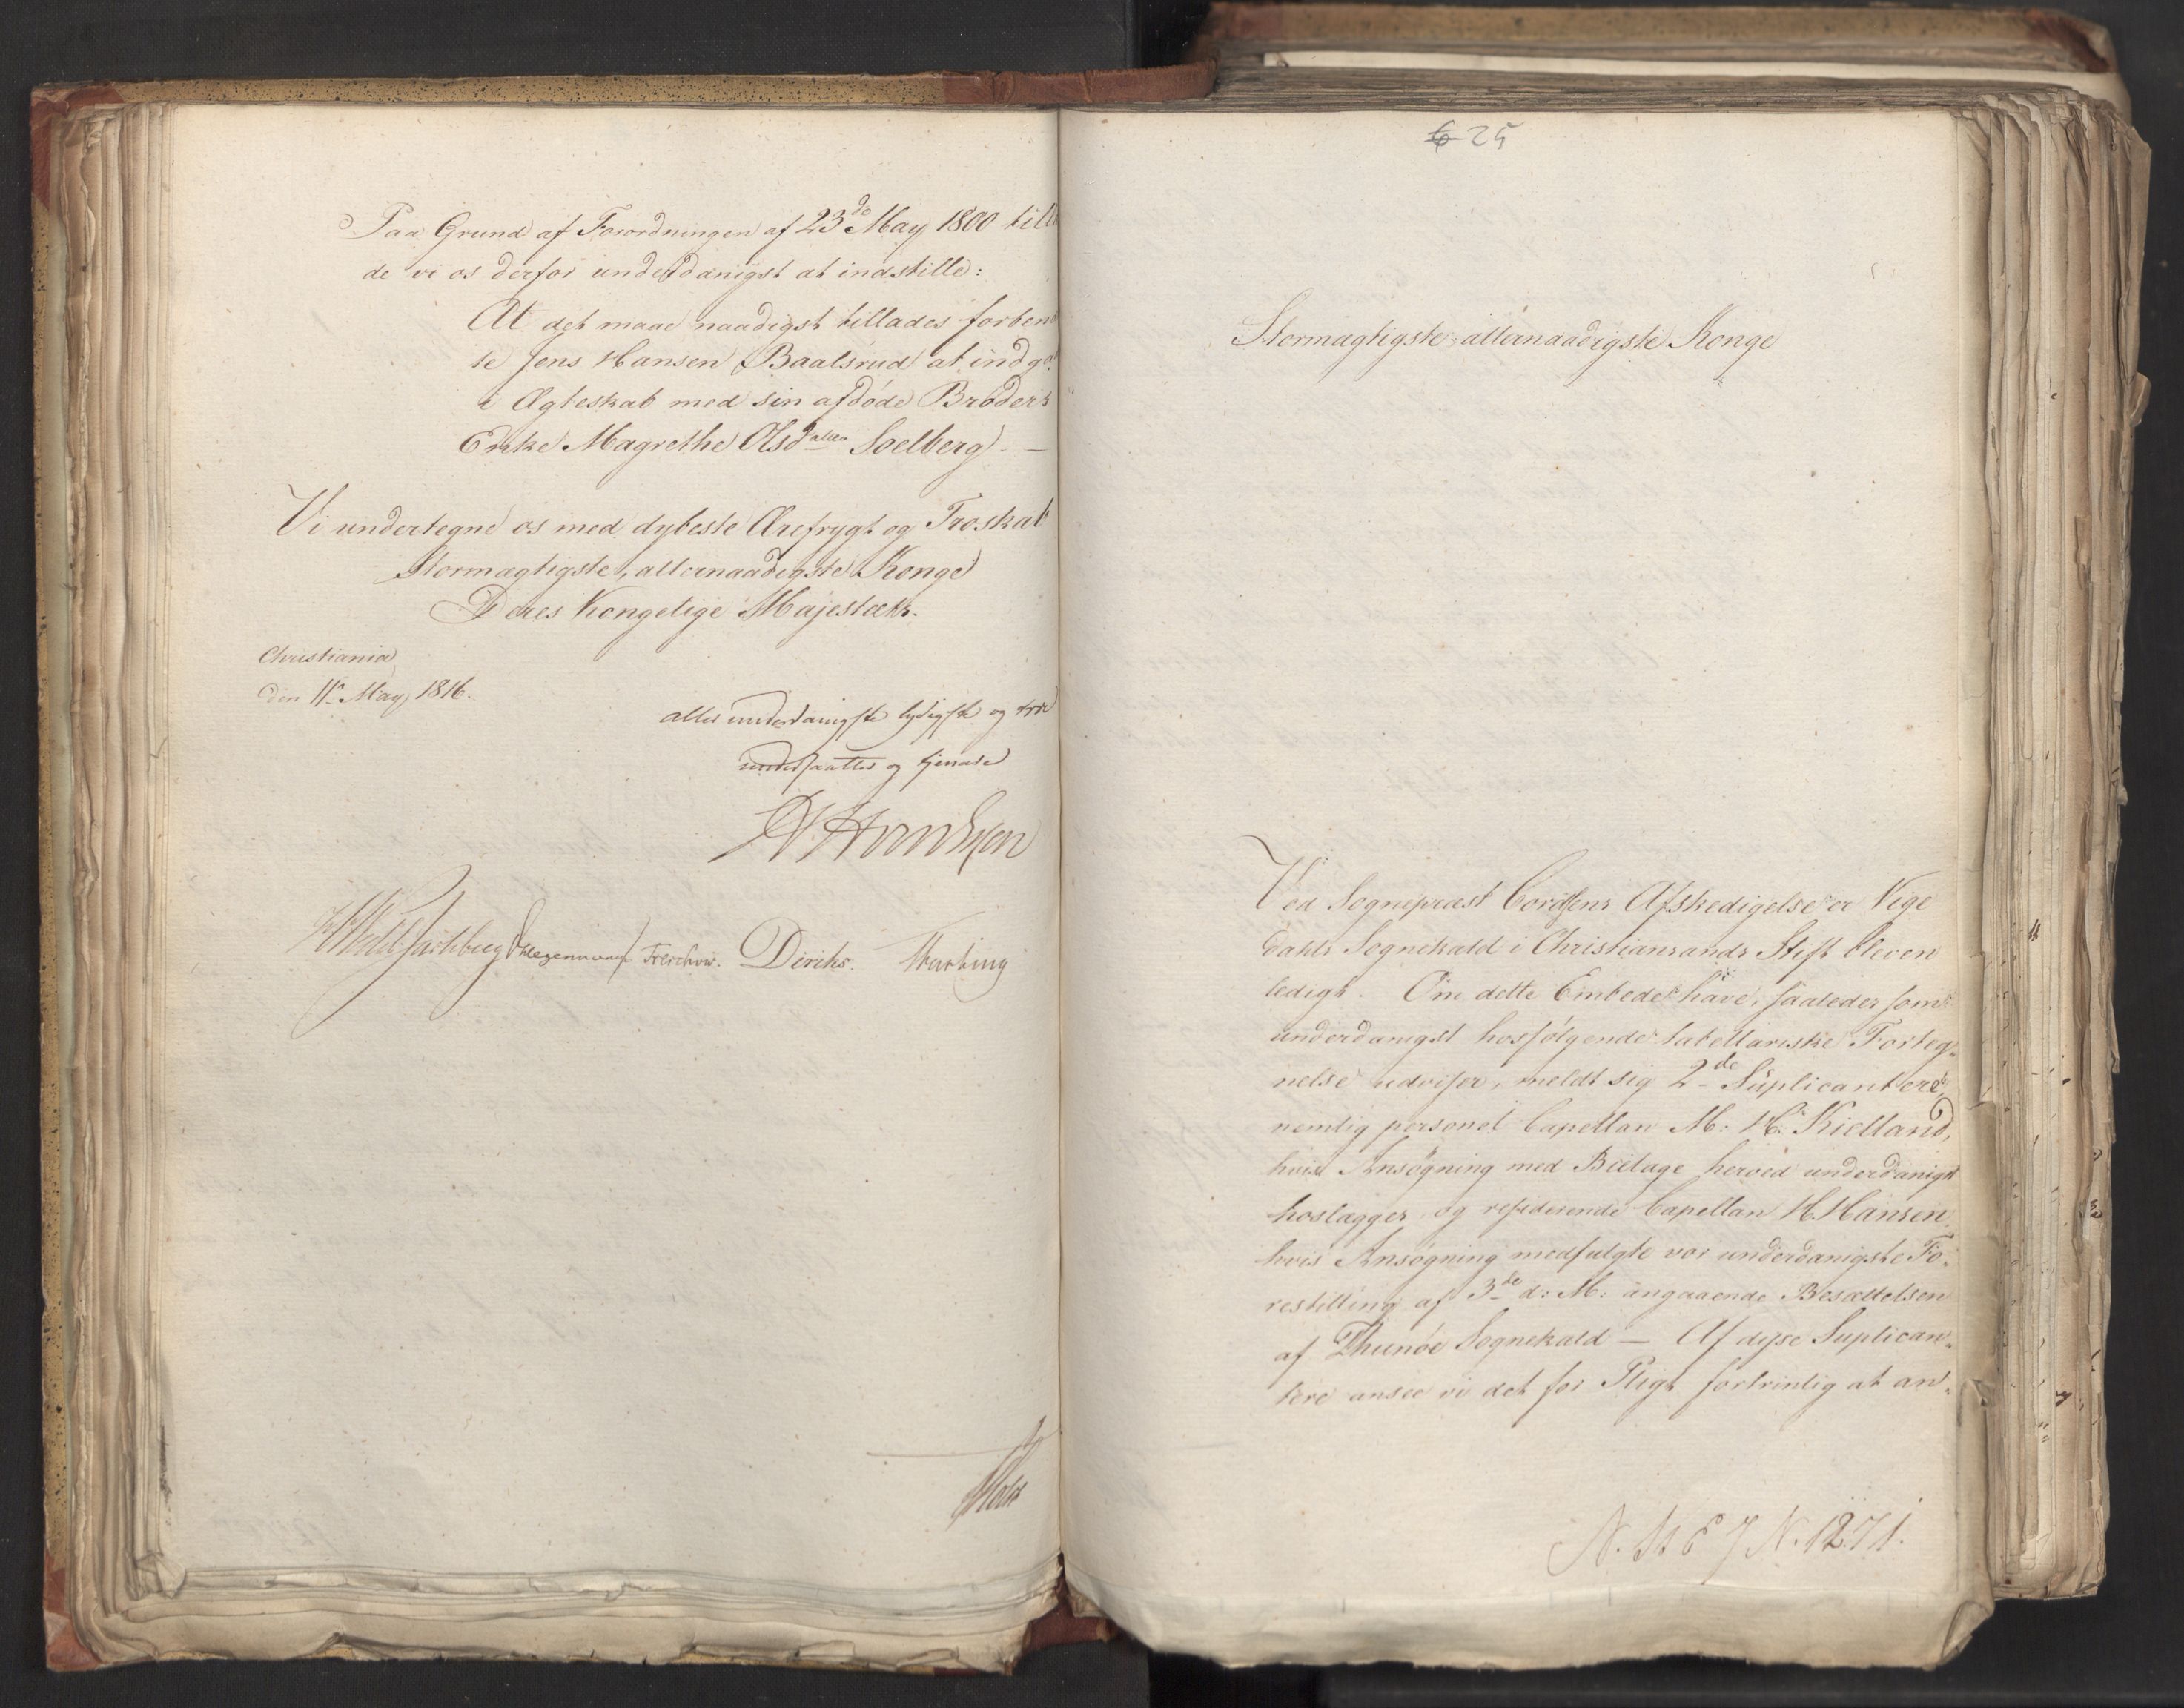 Paa Grund af Forordningen af 23de May 1800 til
de vi os derfor underdanigst at indstille:
At det maae naadigst tillades forbem
te Jens Hansen Baalsrud at indg
i Ægteskab med sin afdøde Broders
Enke Magrethe Olsdatter Soelberg. —
Vi undertegne os med dybeste Ærefrygt og Troskab
Stormægtigste, allernaadigste Konge
Deres Kongelige Majestæts.
Christiania
den 11te May 1816.
aller underdanigste lydigste og troe
undersaatter og tjenere
Diriks.
25
Stormægtigste allernaadigste Konge
Ved Sognepræst Cordsens Afskedigelse er Vige
dahls Sognekald i Christiansands Stift bleven
ledigt. Om dette Embede have, saaledes som
underdanigst hosfølgende tabellariske Forteg-
nelse udviser, meldt sig 2de Suplicantere,
nemlig personel Capellan M: W: Kielland,
hvis Ansøgning med Bielage herved underdanigst
hoslægges, og residerende Capellan H. Hansen
hvis Ansøgning medfulgte vor underdanigste Fo-
restilling af 3de d: M: angaaende Besættelsen
af Thunøe Sognekald — Af disse Suplican-
tere ansee vi det for Pligt fortrinlig at an-
N. 1271.